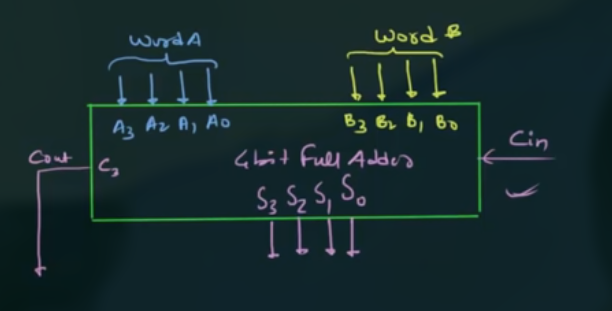 Word A Word B
A3 A2 A1 A0 B3 B2 B1 B0
Cin
Cout C3 4bit Full Adder
S3 S2 S1 S0